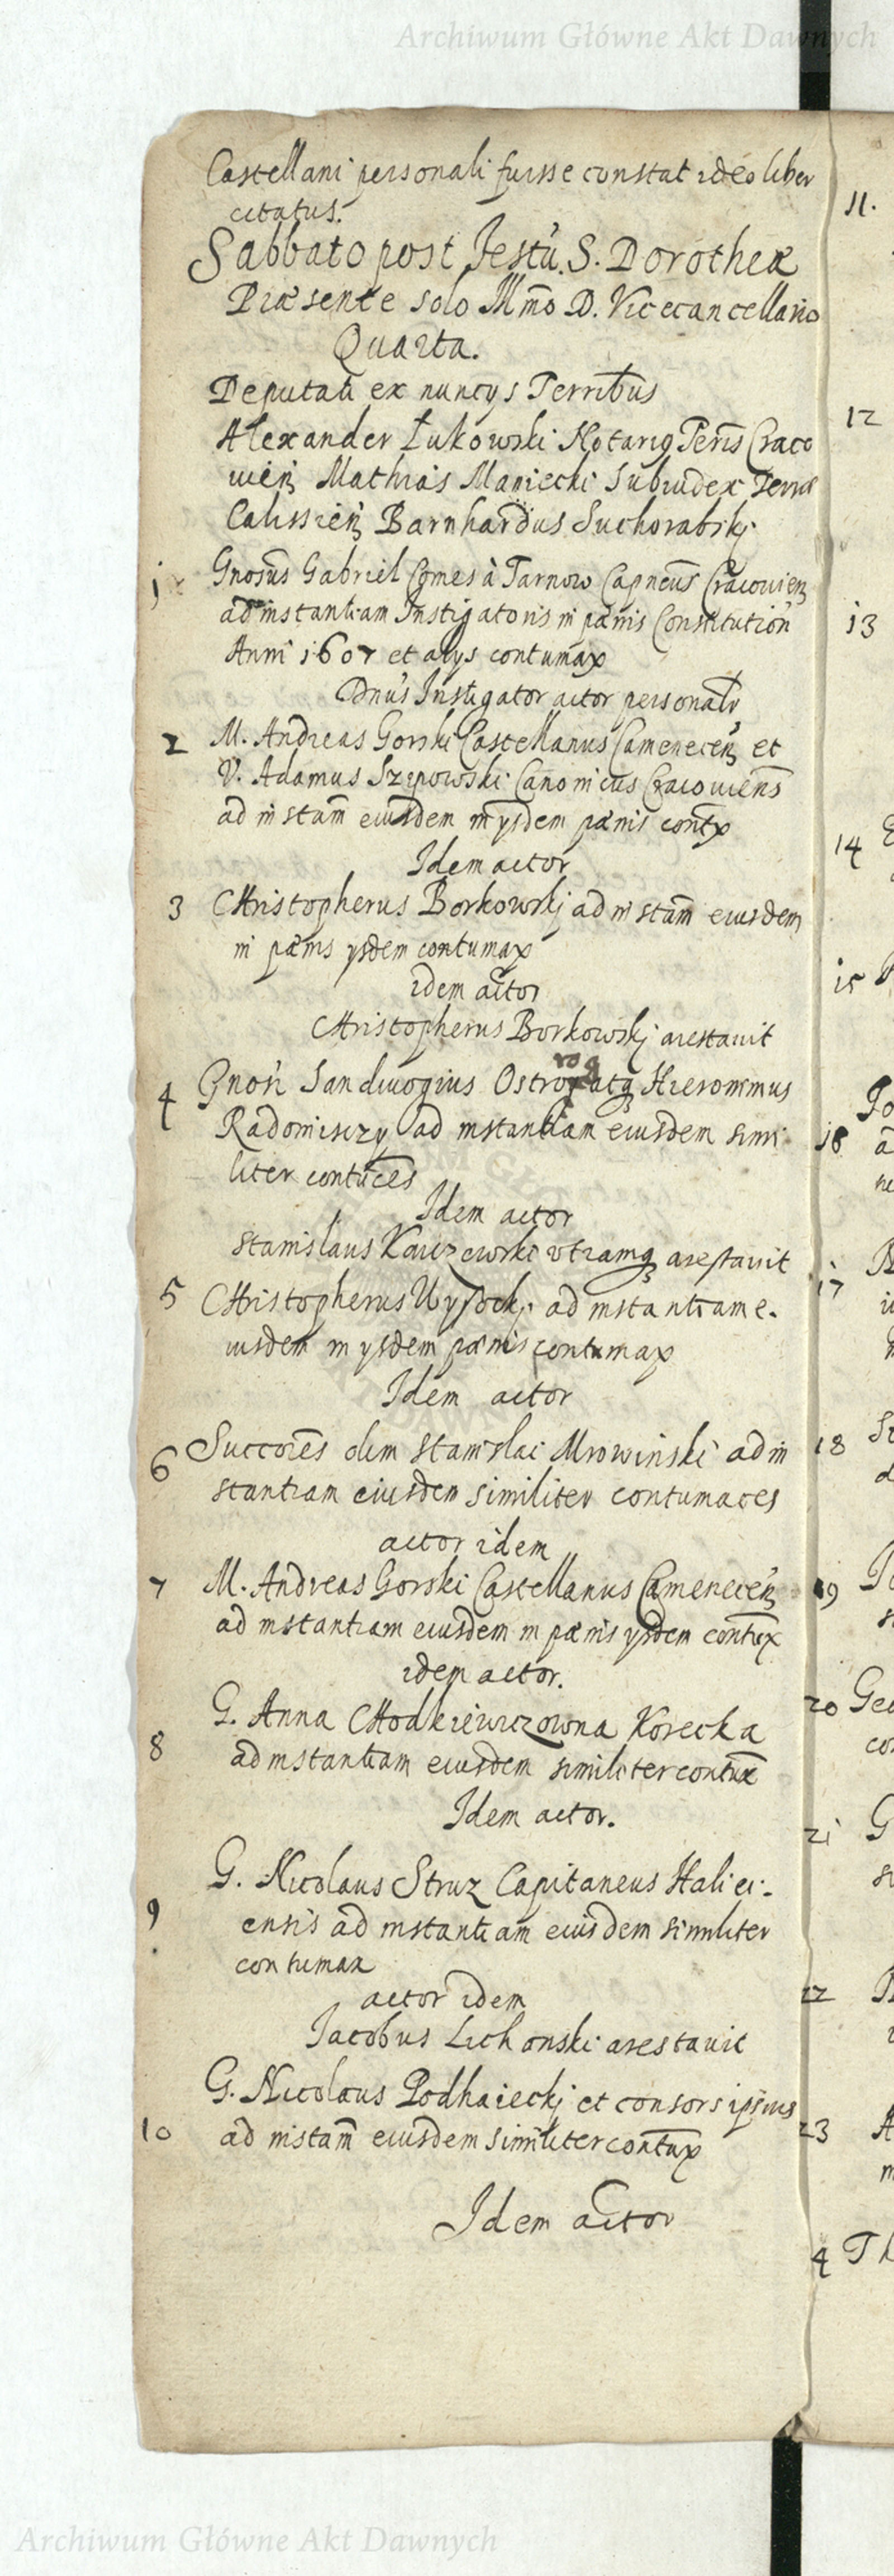 Archiwum Główne Akt Dawnych
Castellani personali fuisse constat ideo liber
citatus.
Sabbato post Festũ S. Dorotheæ
Præsente solo Illm̃o D. Vicecancellario
Quarta.
Deputati ex nuncys Terrib̃us
Alexander Łukowski Notariꝯ Terr̃is Craco
uień Mathias Maniecki Subiudex Terrũ
Calissień Barnhardus Suchorabskj
1 Gnosũs Gabriel Comes à Tarnow Capneũs Cracouień
ad instantiam Instigatoris in pænis Constitutioñ
Anni 1607 et alys contumax
Dnũs Instigator actor personalr̃
2 M. Andreas Gorski Castellanus Cameneceń et
V. Adamus Szypowski Canonicus Cracouieñs
ad instam̃ eiusdem in ysdem pænis cont̃x
Idem actor
3 Christopherus Borkowskj ad instam̃ eiusdem
in pænis ysdem contumax
idem actor
Christopherus Borkowskj arestauit
4 Gnosi Sandiuogius Hieronimus
Radomiczy ad instantiam eiusdem simi
liter contũces
Idem actor
Stanislaus utramqꝫ arestauit
5 Christopherus Wysockj ad instantiam e.
iusdem in ysdem pænis contumax
Idem actor
6 Succorẽs olim Stanislai Mrowinski ad in
stantiam eiusdem similiter contumaces
actor idem
7 M. Andreas Gorski Castellanus Cameneceń
ad instantiam eiusdem in pænis ysdem contũx
idem actor.
8 G. Anna Chodkiewiczowna Korecka
ad instantiam eiusdem similiter contũx
Idem actor.
9 G. Nicolaus Struz Capitaneus Halici-
ensis ad instantiam eiusdem similiter
contumax
actor idem
Jacobus Lichanski arestauit
10 G. Nicolaus Podhaieckj et consors ipsius
ad instam̃ eiusdem similiter contũx
Idem actor
11.
12
13
14
15
16
17
18
19
20
21
22
23
4
Archiwum Główne Akt Dawnych